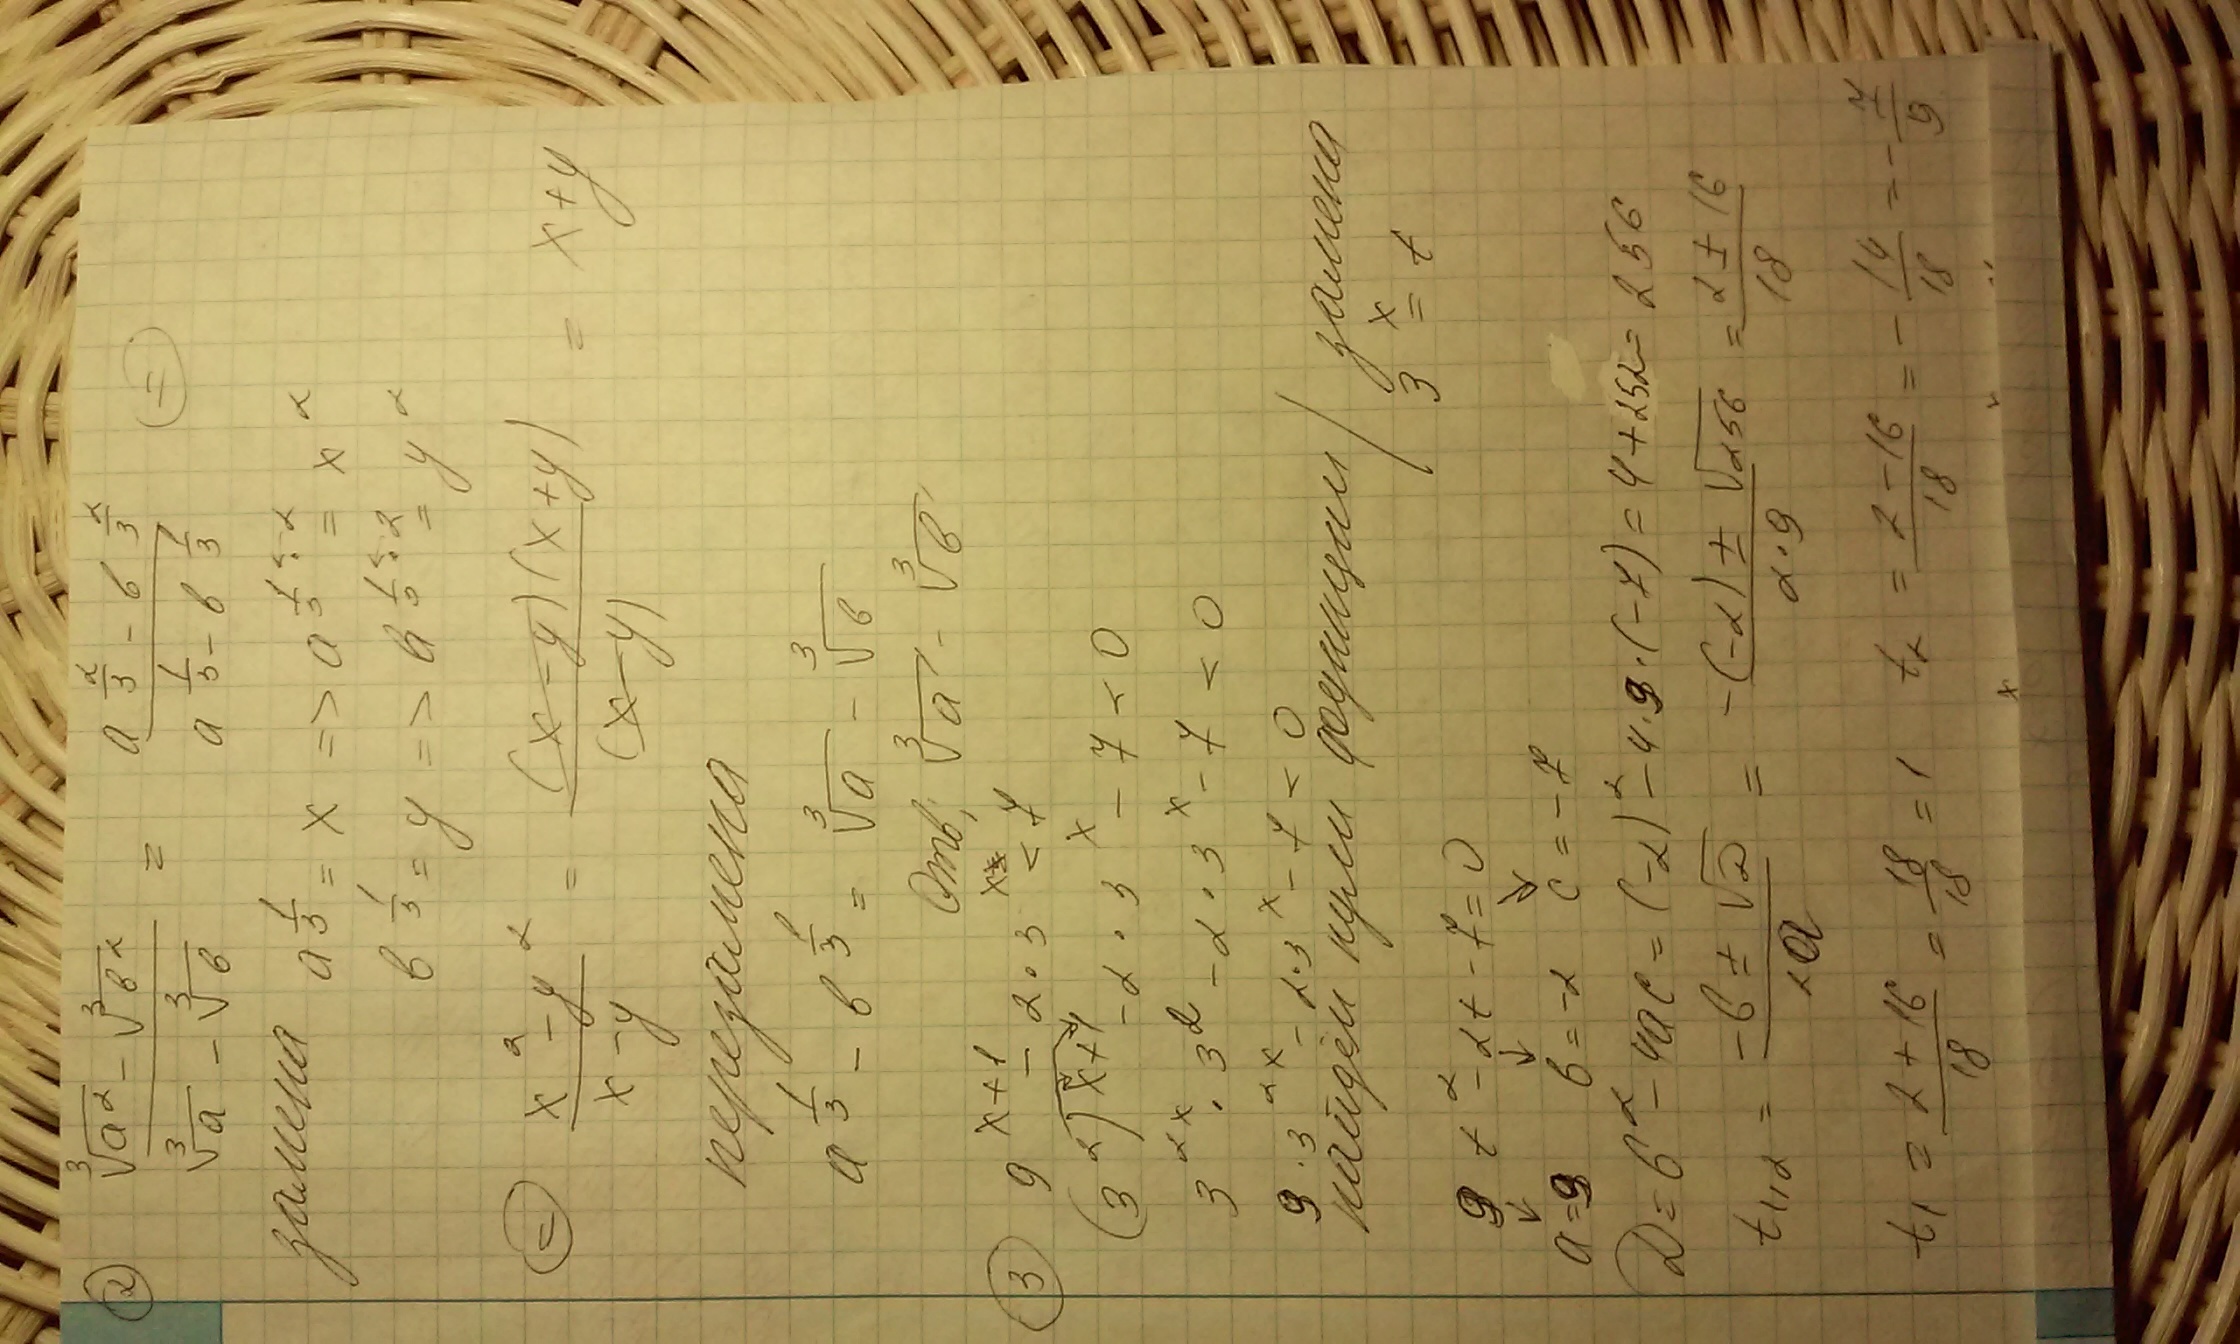 ② (∛a² − ∛b²)/(∛a − ∛b) = (a^(2/3) − b^(2/3))/(a^(1/3) − b^(1/3)) ⊜
замена a^(1/3) = x => a^(1/3·2) = x²
b^(1/3) = y => b^(1/3·2) = y²
⊜ (x² − y²)/(x − y) = ((x−y)(x+y))/(x−y) = x+y
перезамена
a^(1/3) − b^(1/3) = ∛a − ∛b
Отв; ∛a − ∛b
③ 9^(x+1) − 2·3^x < 7
(3²)^(x+1) − 2·3^x − 7 < 0
3^(2x) · 3² − 2·3^x − 7 < 0
9·3^(2x) − 2·3^x − 7 < 0
найдём нули функции / замена
3^x = t
9t² − 2t − 7 = 0
a=9 b=−2 c=−7
D = b² − 4ac = (−2)² − 4·9·(−7) = 4+252 = 256
t1,2 = (−b ± √D)/2a = (−(−2) ± √256)/(2·9) = (2 ± 16)/18
t1 = (2+16)/18 = 18/18 = 1 t2 = (2−16)/18 = −14/18 = −7/9